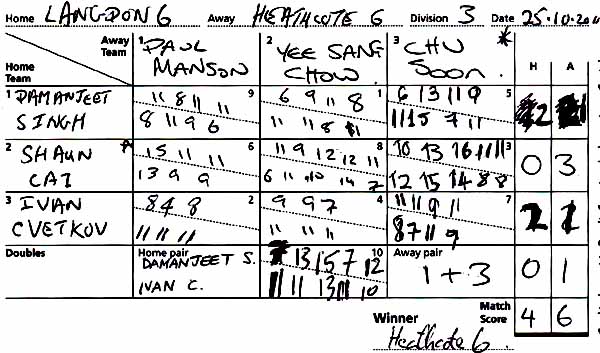 Home LANGDON 6 Away HEATHCOTE 6 Division 3 Date 25.10.
Away Team 1 PAUL MANSON 2 YEE SANG CHOW 3 CHU SOON * H A
Home Team
1 DAMANJEET SINGH 9 1 5
11 8 11 11 6 9 11 8 6 13 11 9
8 11 9 6 11 11 8 11 11 15 7 11
2 SHAUN CAI 6 8 3 0 3
15 11 11 11 9 12 12 11 10 13 16 11 11
13 9 9 6 11 10 14 7 12 15 14 8 8
3 IVAN CVETKOV 2 4 7
8 4 8 9 9 7 11 11 9 11
11 11 11 11 11 11 8 7 11 9
Doubles Home pair DAMANJEET S. IVAN C. 10 Away pair 1 + 3 0 1
13 15 7 12
11 11 13 11 10
Match Score 4 6
Winner Heathcote 6.